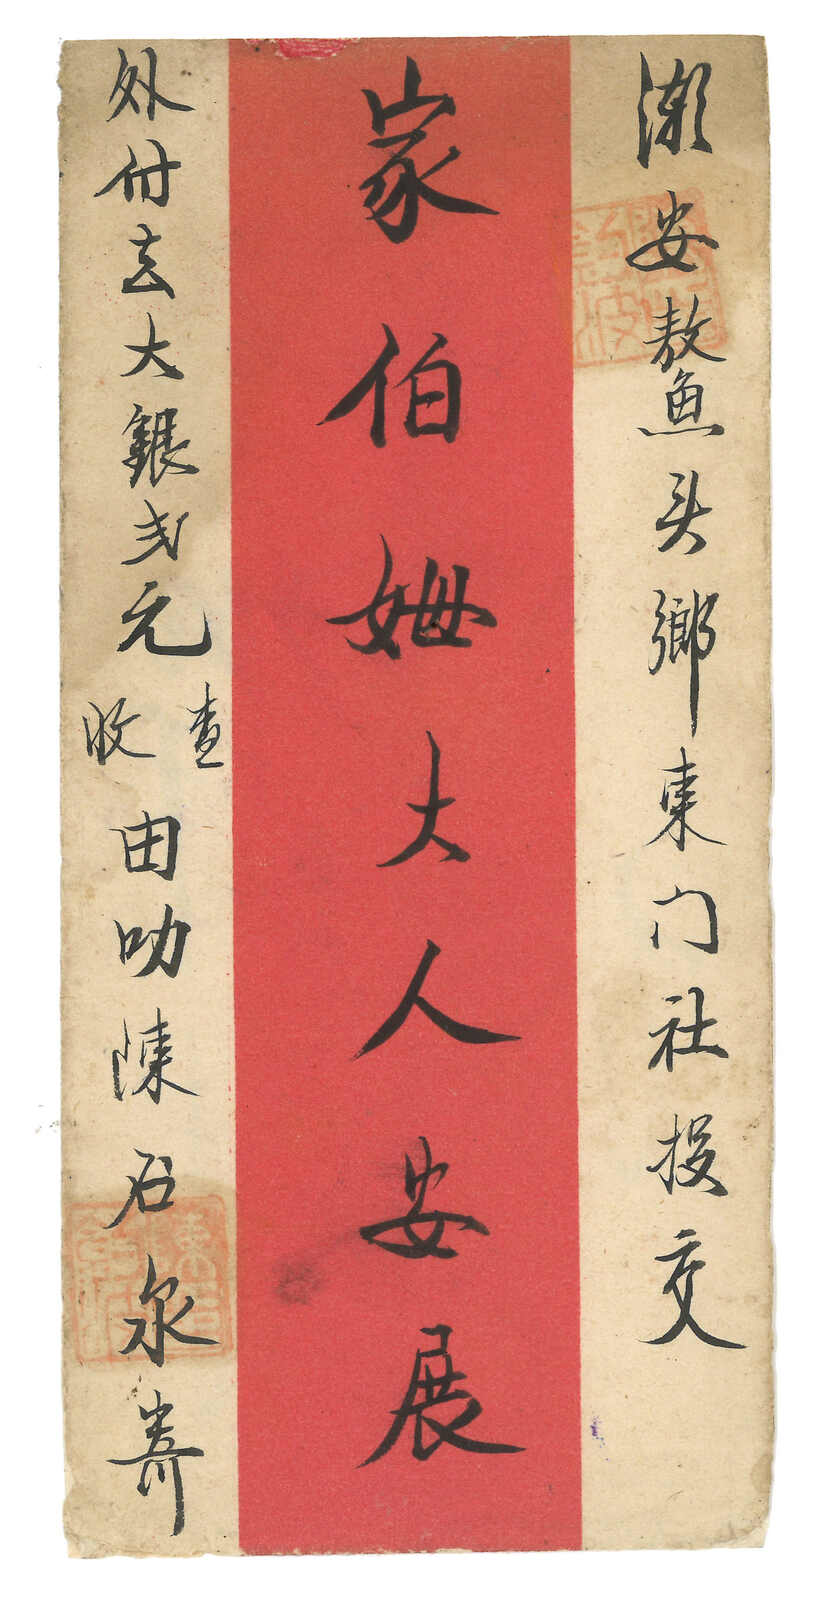 潮安鰲头鄉東门社投交
家伯姆大人安展
外付去大銀弍元
查收
由叻陳石泉寄